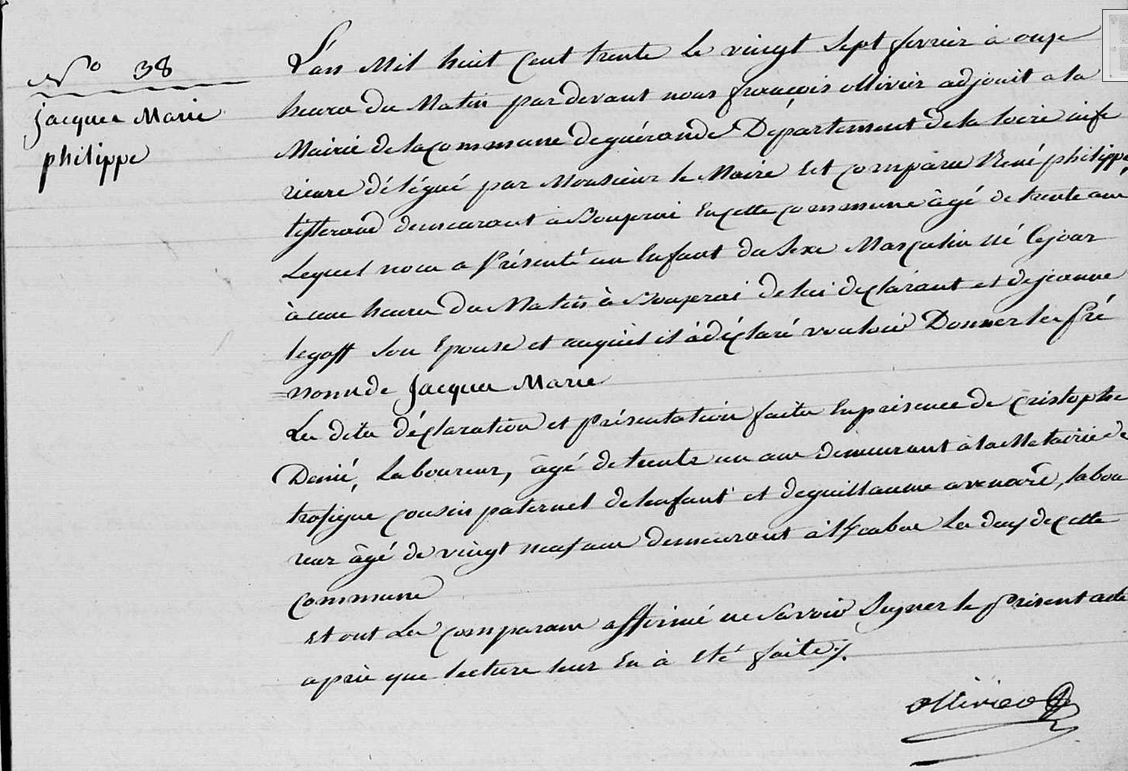 N° 38
Jacques Marie
philippe
L'an Mil huit Cent trente le vingt Sept fevrier à onze
heures du Matin par devant nous françois ollivier adjoit a la
Mairie de la commune de guérande Département de la loire infé
rieure délégué par Monsieur le Maire Est comparu René philippe
tisserand demeurant à en cette commune âgé de trente ans
Lequel nous a Présenté un Enfant du Sexe Masculin né Cejour
à une heure du Matin à de lui déclarant et de jeanne
legoff Son Epouse et auquel il à déclaré vouloir Donner les Pré
noms de Jacques Marie
Les dites déclaration et Présentation faites En présence de Cristophe
Denié, Laboureur, âgé de trente un ans demeurant à la Metairie de
cousin paternel de lenfant et de guillaume avenard, labou
reur âgé de vingt neuf ans demeurant à de cette
commune
Et ont Les comparans affirmé ne Savoir Signer le Présent acte
après que lecture leur En à Eté faite ∕.
ollivier